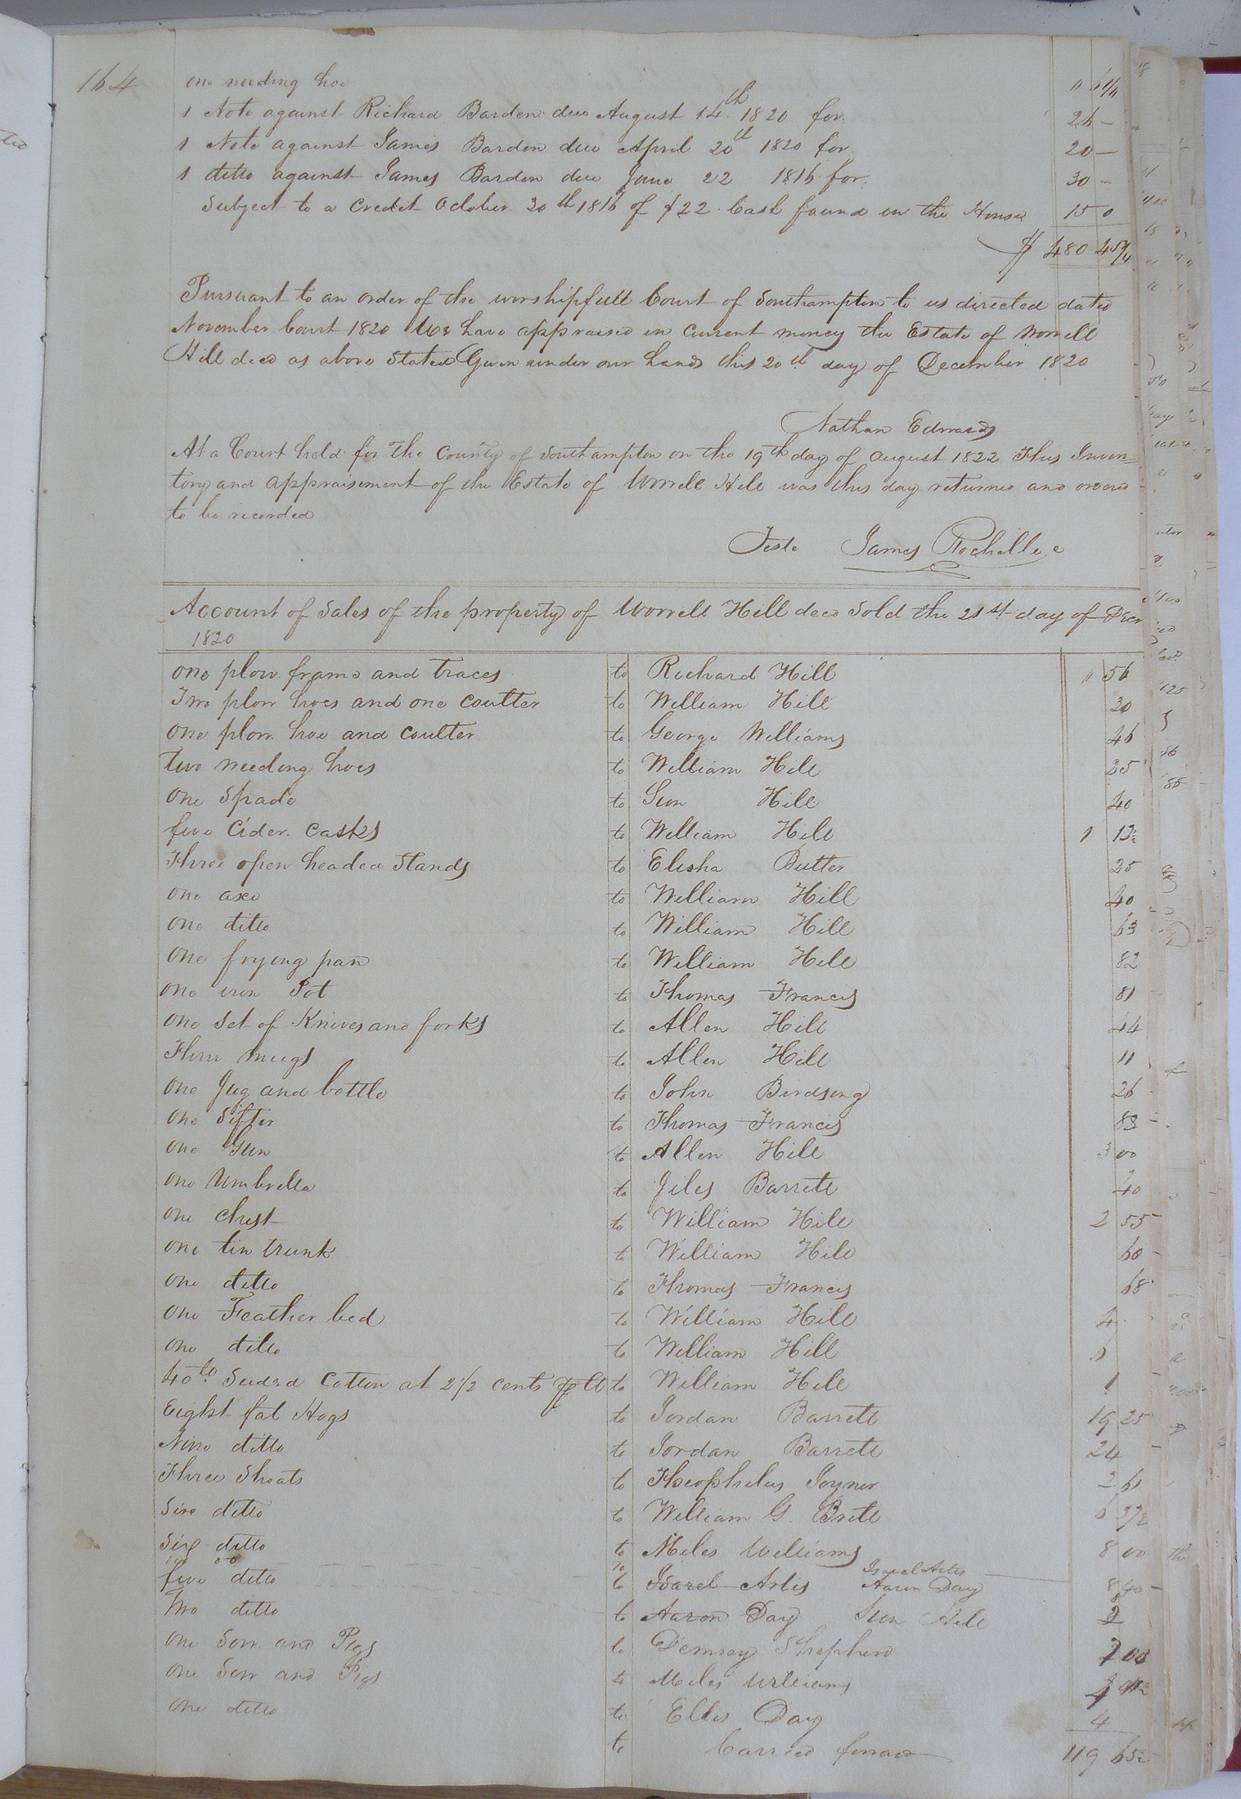 164
one weeding hoe " 61/4
1 Note against Richard Barden due August 14th 1820 for 26 –
1 Note against James Barden due April 20th 1820 for 20 –
1 ditto against James Barden due June 22 1816 for 30 –
Subject to a Credit October 20th 1816 of $22. Cash found in the House 15 0
$ 480 45 3/4
Pursuant to an order of the worshipfull Court of Southampton to us directed dated
November Court 1820 We have appraised in current money the Estate of Worrell
Hill decd as above Stated Given under our hands this 20th day of December 1820
Nathan Edwards
At a Court held for the County of Southampton on the 19th day of August 1822 This Inven=
tory and appraisement of the Estate of Worrell Hill was this day returned and ordered
to be recorded
Teste James Rochelle c
Account of Sales of the property of Worrell Hill decd Sold the 21st day of Decr
1820
one plow frame and traces to Richard Hill " 56
Two plow hoes and one coulter to William Hill 30
one plow hoe and coulter to George Williams 46
two weeding hoes to William Hill 35
one Spade to Hill 40
five Cider Casks to William Hill 1 13½
Three open headed Stands to Elisha Butler 25
one axe to William Hill 40
one ditto to William Hill 63
one frying pan to William Hill 82
one iron Pot to Thomas Francis 81
one Set of Knives and forks to Allen Hill 44
Three mugs to Allen Hill 11
one Jug and bottle to John Birdsong 26
one Sifter to Thomas Francis 83 –
one Gun to Allen Hill 3 00
one Umbrella to Jiles Barrett 40
one Chest to William Hill 2 55 –
one tin trunk to William Hill 60 –
one ditto to Thomas Francis 68
one Feather bed to William Hill 4
one ditto to William Hill
40 lb Seeded Cotton at 2 1/2 cents p lb to William Hill 1
Eight fat Hogs to Jordan Barrett 19 25
Nine ditto to Jordan Barrett 24
Three Shoats to Theophilus Joyner 2 61
ditto to William G. Britt 6 37½
Six ditto to Miles Williams 8 00
five ditto to Isarel Artis Israel Artis Aaron Day 8 40 –
Two ditto to Aaron Day Hill 2
one Sow and Pigs to Demsey Shepherd 7 00
one Sow and Pigs to Miles Williams
one ditto to Elles Day 4
to Carried forward 119 65½